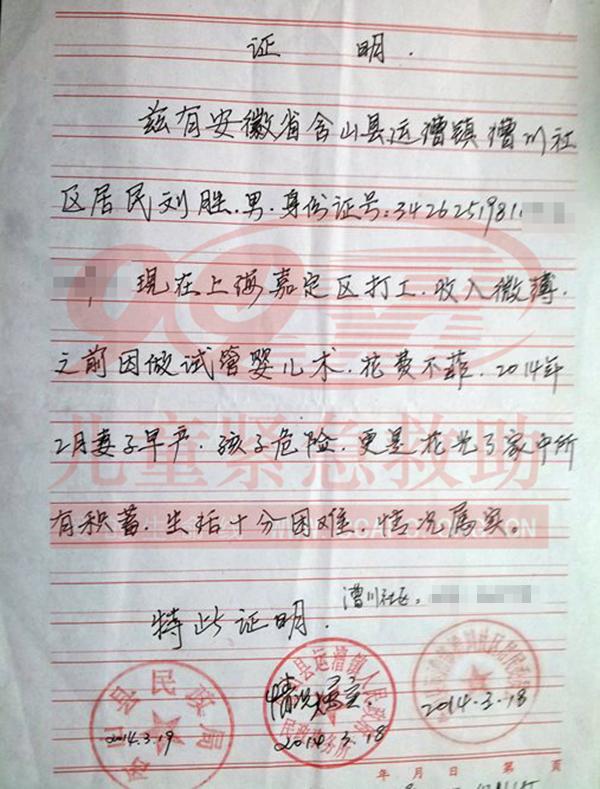 证 明.
兹有安徽省含山县运漕镇漕川社
区居民刘胜.男.身份证号:3426251981
, 现在上海嘉定区打工.收入微薄.
之前因做试管婴儿术.花费不菲.2014年
2月妻子早产.孩子危险.更是花光了家中所
有积蓄.生活十分困难.情况属实。
漕川社区:
特此证明.
情况属实.
2014.3.18
2014.3.18
2014.3.19
县民政局
县运漕镇人民政府
民政事务所
儿童紧急救助
年 月 日 第 页